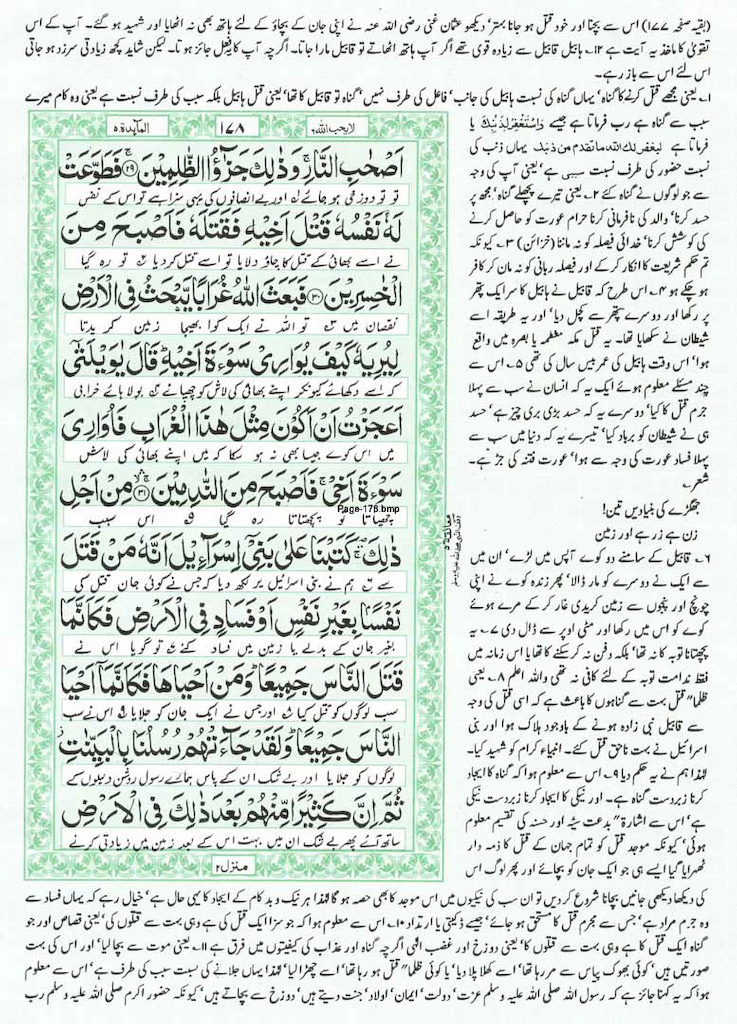 (بقیہ صفحہ ۱۷۷) اس سے بچنا اور خود قتل ہو جانا بہتر' دیکھو عثمان غنی رضی اللہ عنہ نے اپنی جان کے بچاؤ کے لئے ہاتھ بھی نہ اٹھایا اور شہید ہو گئے۔ آپ کے اس
تقویٰ کا ماخذ یہ آیت ہے ۱۲۔ ہابیل قابیل سے زیادہ قوی تھے اگر آپ ہاتھ اٹھاتے تو قابیل مارا جاتا۔ اگرچہ آپ کا یہ فعل جائز ہوتا۔ لیکن شاید کچھ زیادتی سرزد ہو جاتی
اس لئے اس سے باز رہے۔
۱۔ یعنی مجھے قتل کرنے کا گناہ' یہاں گناہ کی نسبت ہابیل کی جانب' فاعل کی طرف نہیں' گناہ تو قابیل کا تھا' یعنی قتل ہابیل بلکہ سبب کی طرف نسبت ہے یعنی وہ کام میرے
لا یحب اللہ ۶
۱۷۸
المآئدۃ ۵
اَصْحٰبِ النَّارِ ۚ وَذٰلِكَ جَزٰٓؤُا الظّٰلِمِيْنَ ۚ﴿۲۹﴾ فَطَوَّعَتْ
تو تو دوزخی ہو جائے لہ اور بے انصافوں کی یہی سزا ہے تو اس کے نفس
لَهٗ نَفْسُهٗ قَتْلَ اَخِيْهِ فَقَتَلَهٗ فَاَصْبَحَ مِنَ
نے اسے بھائی کے قتل کا چاؤ دلایا تو اسے قتل کر دیا تو رہ گیا
الْخٰسِرِيْنَ ﴿۳۰﴾ فَبَعَثَ اللّٰهُ غُرَابًا يَّبْحَثُ فِى الْاَرْضِ
نقصان میں تو اللہ نے ایک کوا بھیجا زمین کریدتا
لِيُرِيَهٗ كَيْفَ يُوَارِىْ سَوْءَةَ اَخِيْهِ ؕ قَالَ يٰوَيْلَتٰٓى
کہ اسے دکھائے کیونکر اپنے بھائی کی لاش کو چھپائے بولا ہائے خرابی
اَعَجَزْتُ اَنْ اَكُوْنَ مِثْلَ هٰذَا الْغُرَابِ فَاُوَارِىَ
میں اس کوے جیسا بھی نہ ہو سکا کہ میں اپنے بھائی کی لاش
سَوْءَةَ اَخِىْ ۚ فَاَصْبَحَ مِنَ النّٰدِمِيْنَ ﴿۳۱﴾ مِنْ اَجْلِ
Page-178.bmp
چھپاتا تو پچھتاتا رہ گیا اس سبب
ذٰلِكَ ۛؔ كَتَبْنَا عَلٰى بَنِىْٓ اِسْرَآءِيْلَ اَنَّهٗ مَنْ قَتَلَ
سے ہم نے بنی اسرائیل پر لکھ دیا کہ جس نے کوئی جان قتل کی
نَفْسًۢا بِغَيْرِ نَفْسٍ اَوْ فَسَادٍ فِى الْاَرْضِ فَكَاَنَّمَا
بغیر جان کے بدلے یا زمین میں فساد کئے تو گویا اس نے
قَتَلَ النَّاسَ جَمِيْعًا ؕ وَمَنْ اَحْيَاهَا فَكَاَنَّمَاۤ اَحْيَا
سب لوگوں کو قتل کیا اور جس نے ایک جان کو جلا لیا اس نے سب
النَّاسَ جَمِيْعًا ؕ وَلَقَدْ جَآءَتْهُمْ رُسُلُنَا بِالْبَيِّنٰتِ
لوگوں کو جلا لیا اور بے شک ان کے پاس ہمارے رسول روشن دلیلوں کے
ثُمَّ اِنَّ كَثِيْرًا مِّنْهُمْ بَعْدَ ذٰلِكَ فِى الْاَرْضِ
ساتھ آئے پھر بے شک ان میں بہت اس کے بعد زمین میں زیادتی کرنے
منزل ۲
سبب سے گناہ ہے رب فرماتا ہے جیسے وَاسْتَغْفِرْ لِذَنْبِكَ یا
فرماتا ہے لیغفر لك الله ما تقدم من ذنبك یہاں ذنب کی
نسبت حضور کی طرف نسبت سببی ہے' یعنی آپ کی وجہ
سے جو لوگوں نے گناہ کئے ۲۔ یعنی تیرے پچھلے گناہ' مجھ پر
حسد کرنا' والد کی نافرمانی کرنا حرام عورت کو حاصل کرنے
کی کوشش کرنا' خدائی فیصلہ کو نہ ماننا (خزائن) ۳۔ کیونکہ
تم حکم شریعت کا انکار کر کے اور فیصلہ ربانی کو نہ مان کر کافر
ہو چکے ہو ۴۔ اس طرح کہ قابیل نے ہابیل کا سر ایک پتھر
پر رکھا اور دوسرے پتھر سے کچل دیا' اور یہ طریقہ اسے
شیطان نے سکھایا تھا۔ یہ قتل مکہ معظمہ یا بصرہ میں واقع
ہوا' اس وقت ہابیل کی عمر بیس سال کی تھی ۵۔ اس سے
چند مسئلے معلوم ہوئے ایک یہ کہ انسان نے سب سے پہلا
جرم قتل کا کیا' دوسرے یہ کہ حسد بڑی بری چیز ہے' حسد
ہی نے شیطان کو برباد کیا' تیسرے یہ کہ دنیا میں سب سے
پہلا فساد عورت کی وجہ سے ہوا' عورت فتنہ کی جڑ ہے۔
شعر۔
جھگڑے کی بنیادیں تین!
زن ہے زر ہے اور زمین
۶۔ قابیل کے سامنے دو کوے آپس میں لڑے' ان میں
سے ایک نے دوسرے کو مار ڈالا' پھر زندہ کوے نے اپنی
چونچ اور پنجوں سے زمین کریدی غار کر کے مرے ہوئے
کوے کو اس میں رکھا اور مٹی اوپر سے ڈال دی ۷۔ یہ
پچھتانا توبہ کا نہ تھا' بلکہ دفن نہ کر سکنے کا تھا یا اس زمانہ میں
فقط ندامت توبہ کے لئے کافی نہ تھی واللہ اعلم ۸۔ یعنی
ظلما" قتل بہت سے گناہوں کا باعث ہے کہ اسی قتل کی وجہ
سے قابیل نبی زادہ ہونے کے باوجود ہلاک ہوا اور بنی
اسرائیل نے بہت ناحق قتل کئے۔ انبیاء کرام کو شہید کیا۔
لہٰذا ہم نے یہ حکم دیا ۹۔ اس سے معلوم ہوا کہ گناہ کا ایجاد
کرنا زبردست گناہ ہے۔ اور نیکی کا ایجاد کرنا زبردست نیکی
ہے' اس سے اشارۃ" بدعت سیئہ اور حسنہ کی تقسیم معلوم
ہوئی' کیونکہ موجد قتل کو تمام جہان کے قتل کا ذمہ دار
ٹھہرایا گیا ایسے ہی جو ایک جان کو بچائے اور پھر لوگ اس
کی دیکھا دیکھی جانیں بچانا شروع کر دیں تو ان سب کی نیکیوں میں اس موجد کا بھی حصہ ہو گا لہٰذا ہر نیک و بد کام کے ایجاد کا یہی حال ہے' خیال رہے کہ یہاں فساد سے
وہ جرم مراد ہے' جس سے مجرم قتل کا مستحق ہو جائے' جیسے ڈکیتی یا ارتداد ۱۰۔ اس سے معلوم ہوا کہ جو سزا ایک قتل کی ہے وہی بہت سے قتلوں کی' یعنی قصاص اور جو
گناہ ایک قتل کا ہے وہی بہت سے قتلوں کا' یعنی دوزخ اور غضب الٰہی اگرچہ گناہ اور عذاب کی کیفیتوں میں فرق ہے ۱۱۔ یعنی موت سے بچا لیا' اور اس کی بہت
صورتیں ہیں' کوئی بھوک پیاس سے مر رہا تھا' اسے کھلا پلا دیا' یا کوئی ظلما" قتل ہو رہا تھا' اسے چھڑا لیا' لہٰذا یہاں جلانے کی نسبت سبب کی طرف ہے' اس سے معلوم
ہوا کہ یہ کہنا جائز ہے کہ رسول اللہ صلی اللہ علیہ وسلم عزت' دولت' ایمان' اولاد' جنت دیتے ہیں' دوزخ سے بچاتے ہیں' کیونکہ حضور اکرم صلی اللہ علیہ وسلم رب